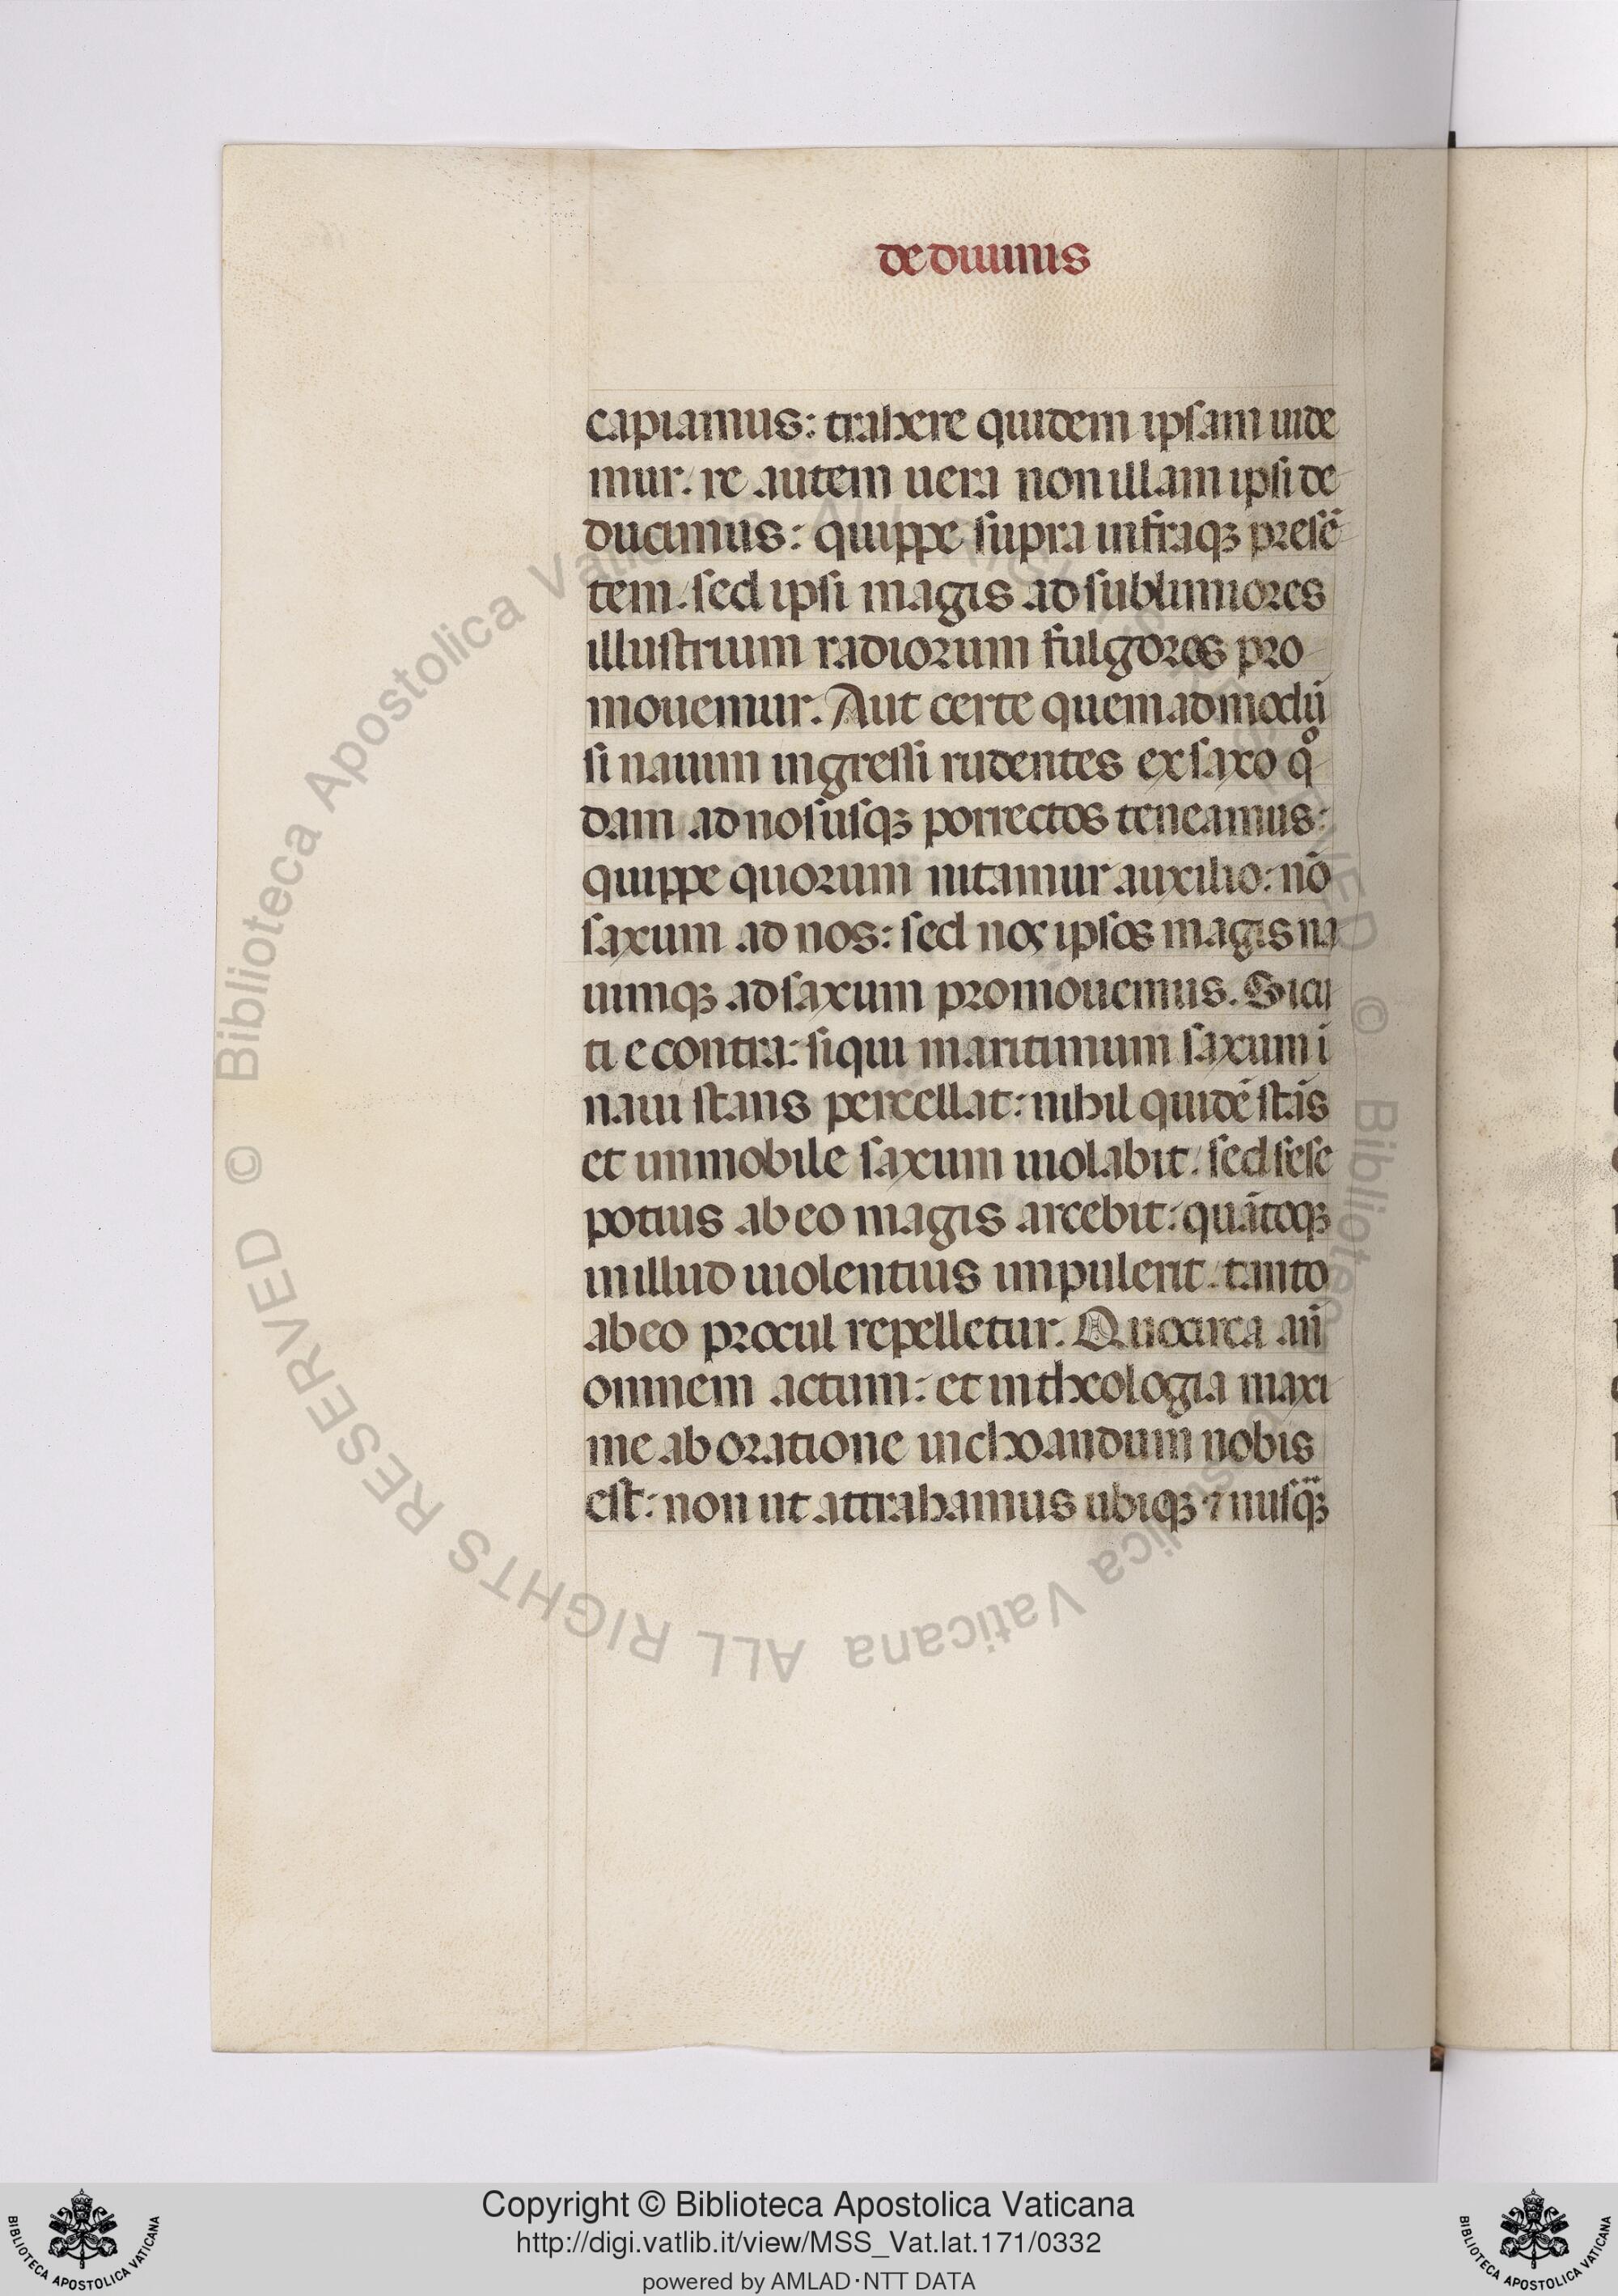 de diuinis
capiamus: trahere quidem ipsam uide
mur. re autem uera non illam ipsi de
ducimus: quippe supra infraqꝫ presē
tem. sed ipsi magis ad sublimiores
illustrium radiorum fulgores pro
mouemur. Aut certe quemadmodū
si nauim ingressi rudentes ex saxo qͦ
dam ad nos usqꝫ porrectos teneamus:
quippe quorum nitamur auxilio: nō
saxum ad nos: sed nos ipsos magis na
uimqꝫ ad saxum promouemus. Sicu
ti e contra: si qui maritimum saxum ī
naui stans percellat: nihil quidē stās
et immobile saxum uiolabit. sed sese
potius ab eo magis arcebit: quātoqꝫ
in illud uiolentius impulerit. tanto
ab eo procul repelletur. Quocirca an̄
omnem actum: et in theologia maxi
me ab oratione inchoandum nobis
est: non ut attrahamus ubiqꝫ ⁊ nusq̈ꝫ
© Biblioteca Apostolica Vaticana ALL RIGHTS RESERVED
Copyright © Biblioteca Apostolica Vaticana
http://digi.vatlib.it/view/MSS_Vat.lat.171/0332
powered by AMLAD·NTT DATA
BIBLIOTECA APOSTOLICA VATICANA
BIBLIOTECA APOSTOLICA VATICANA